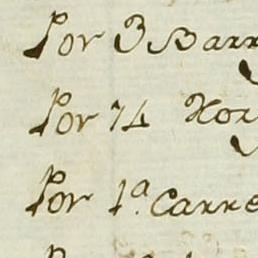 Por 3 Barr
Por 74 Hor
Por 1ª Carre